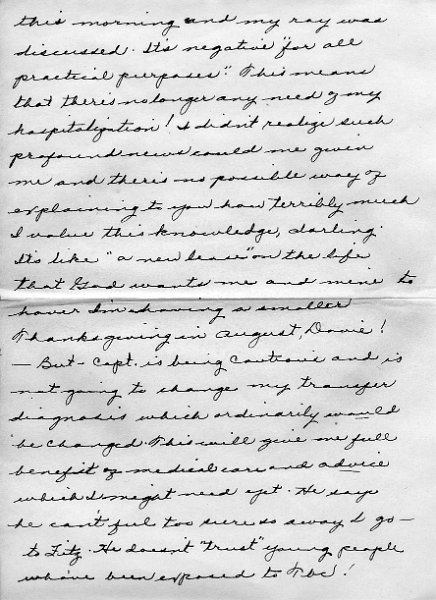 this morning and my ray was
discussed. It's negative "for all
practical purposes". This means
that there's no longer any need of my
hospitalization! I didn't realize such
profound news could me given
me and there's no possible way of
explaining to you how terribly much
I value this knowledge, darling.
It's like "a new lease" on the life
that God wants me and mine to
have. I'm having a smaller
Thanksgiving in August, Davie!
— But - Capt. is being cautious and is
not going to change my transfer
diagnosis which ordinarily would
be changed. This will give me full
benefit of medical care and advice
which I might need yet. He says
he can't feel too sure so away I go —
to Fitz. He doesn't "trust" young people
who've been exposed to Tbc!